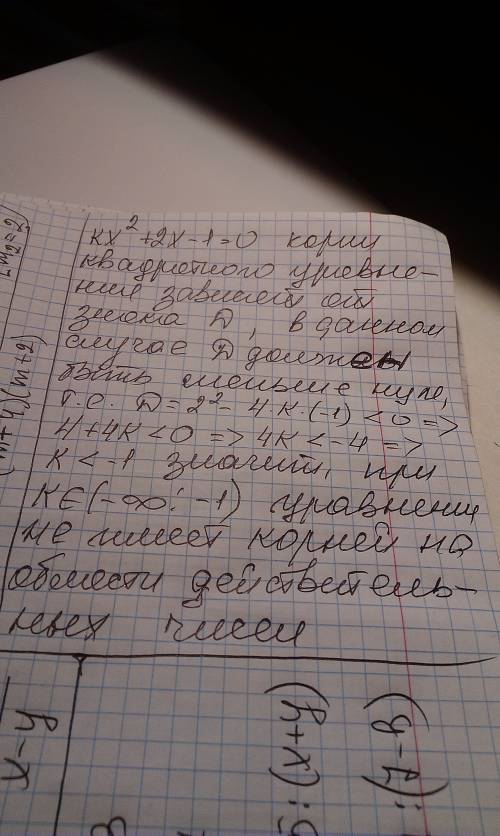 кх² + 2х - 1 = 0 корни
квадратного уравне-
ния зависят от
знака D, в данном
случае D должен
быть меньше нуля,
т.е. D = 2² - 4·к·(-1) < 0 =>
4 + 4к < 0 => 4к < -4 =>
к < -1 значит, при
к ∈ (-∞; -1) уравнение
не имеет корней на
области действитель-
ных чисел
m₂ = 2
(m+4)(m+2)
х - у
5 : (х + у)